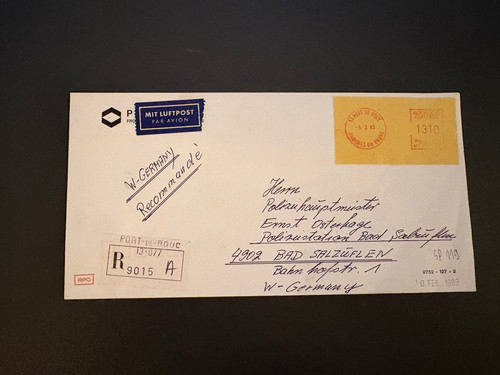 P
MIT LUFTPOST
PAR AVION
1310
W-GERMANY
Recommandé
Herrn
Polizeihauptmeister
Ernst Osterhage
Polizeistation Bad Salzuflen
4902 BAD SALZUFLEN
Bahnhofstr. 1
W-Germany
PORT-de-BOUC
13-077
R 9015 A
APC
0752 - 127 - 2